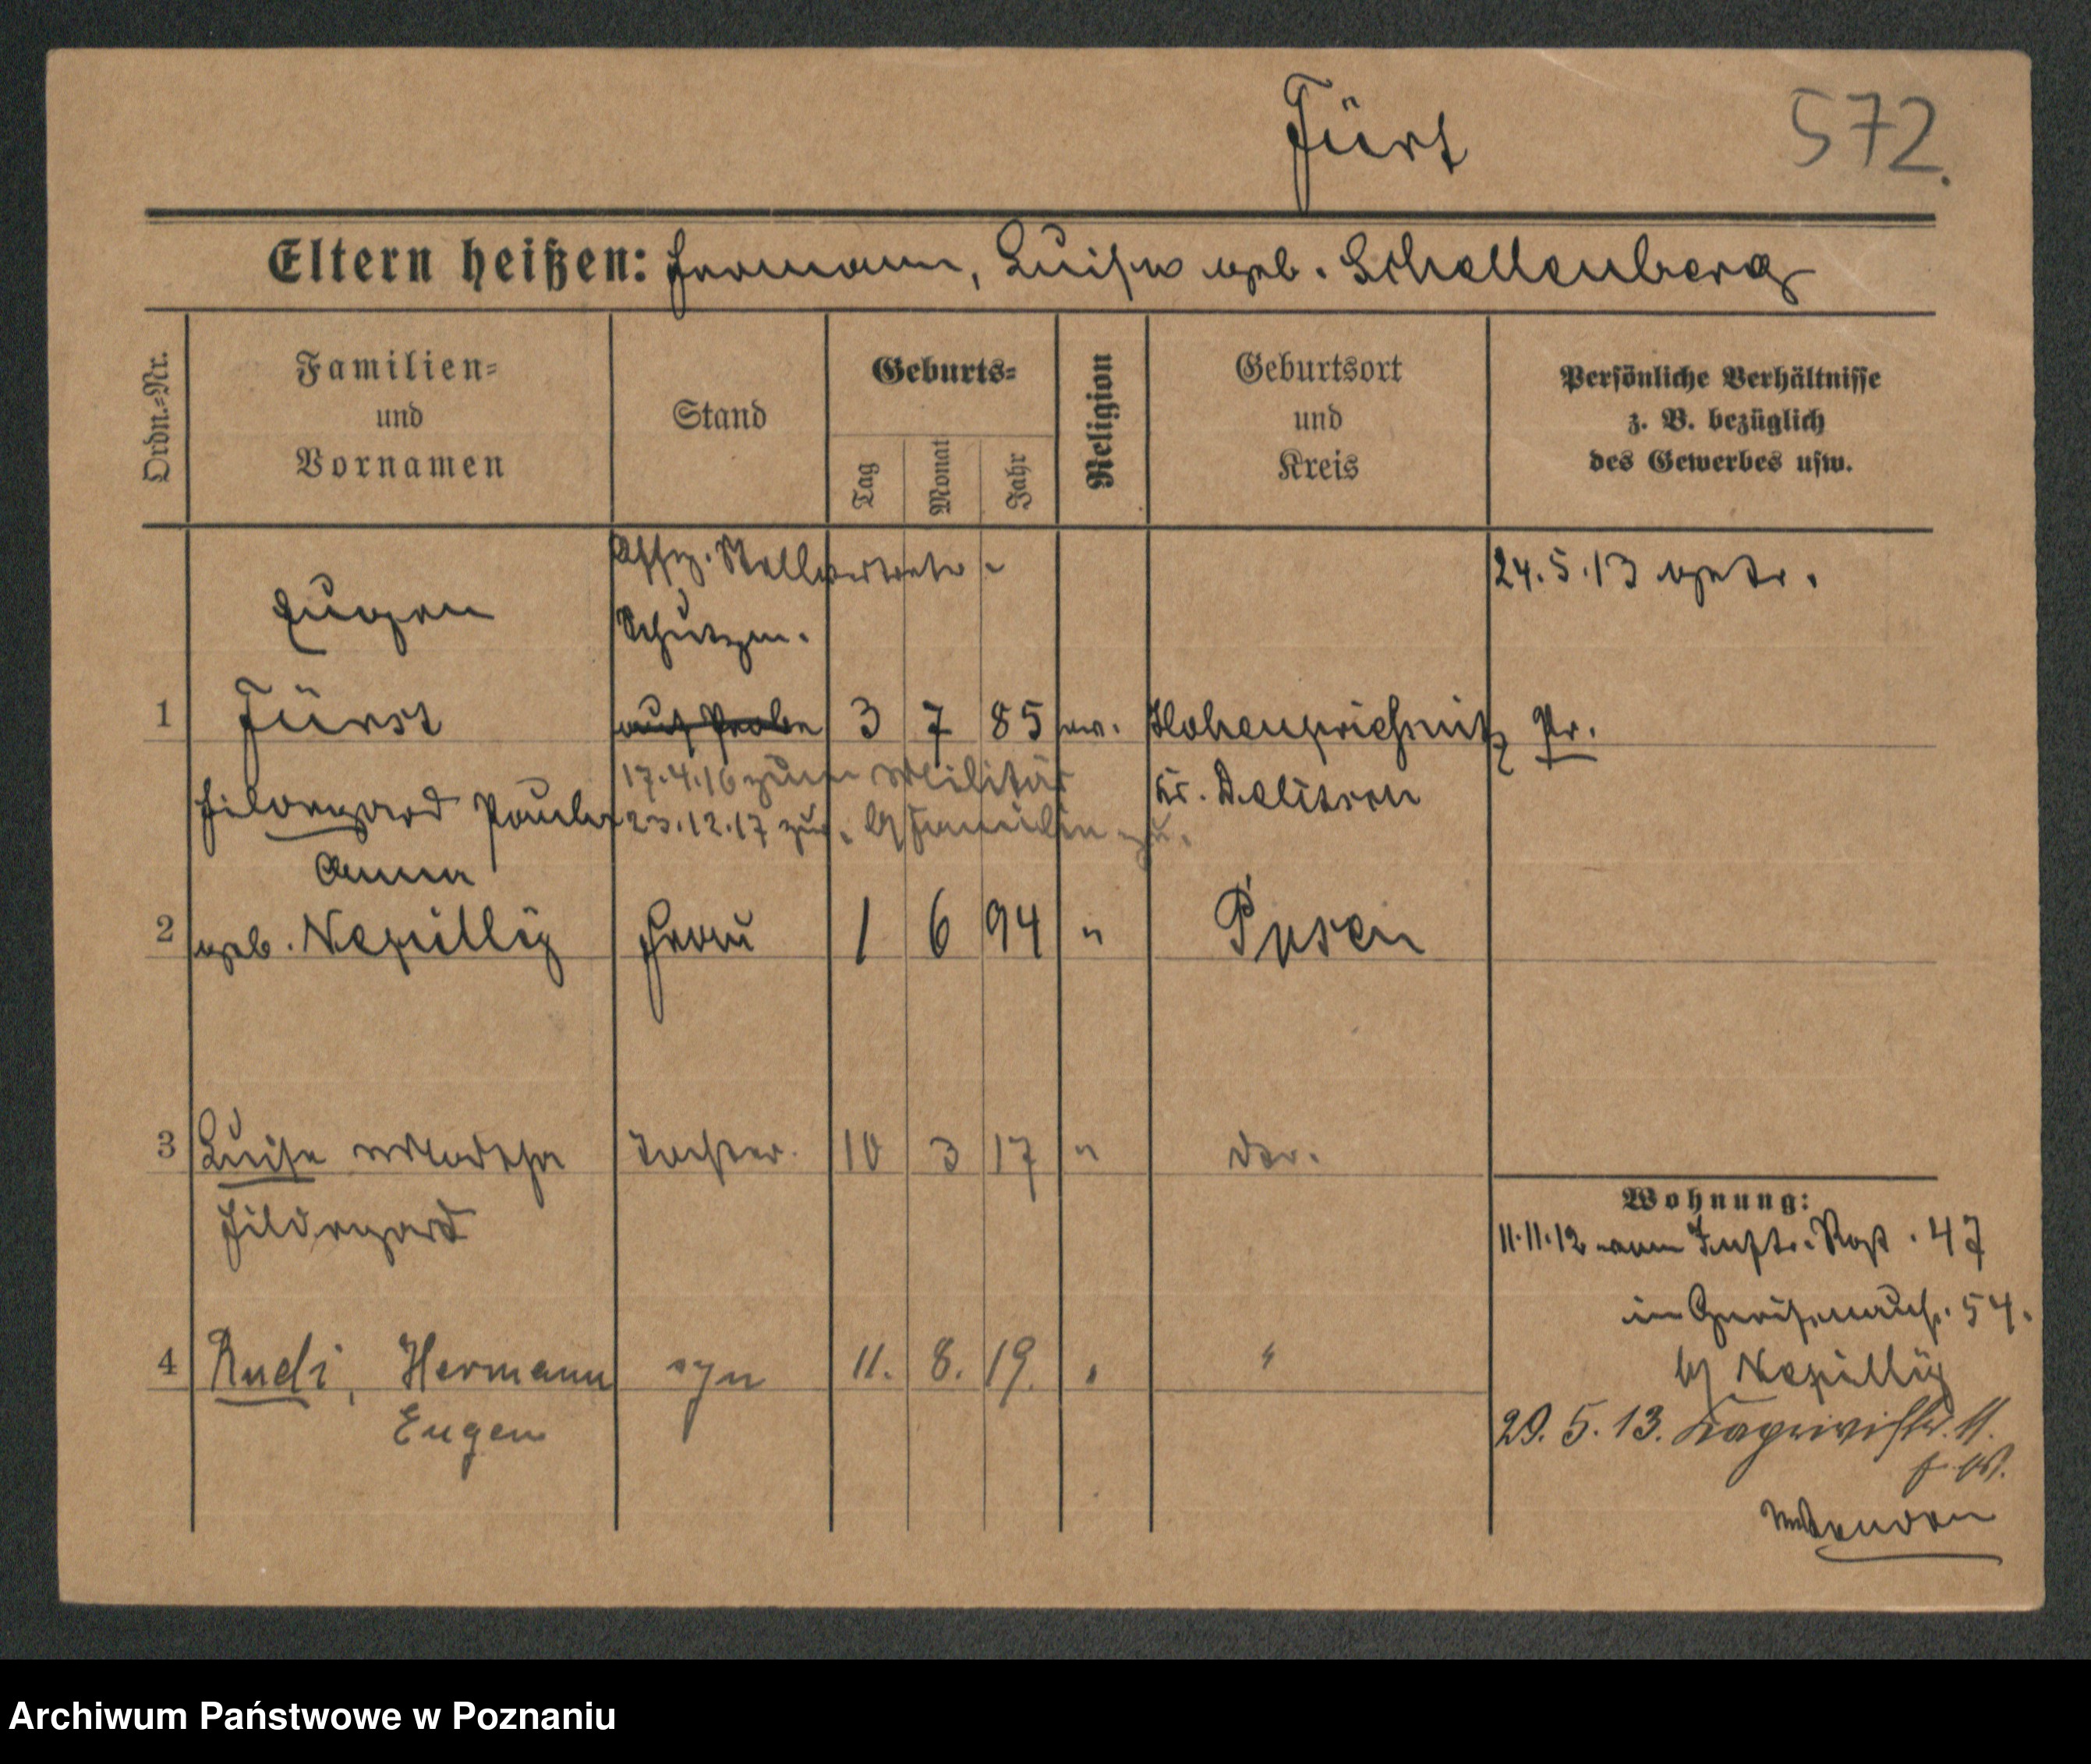 Fürst
572.
Eltern heißen: Hermann, Luise geb. Schellenberg
Ordn.-Nr.
Familien-
und
Vornamen
Stand
Geburts-
Tag
Monat
Jahr
Religion
Geburtsort
und
Kreis
Persönliche Verhältnisse
z. B. bezüglich
des Gewerbes usw.
Offiz. Stellvertreter
24.5.13 getr.
Eugen
Schutzm.
1 Fürst auf Probe 3 7 85 ev. Hohenprießnitz Pr.
17.4.16 zum Militär
Kr. Delitzsch
Hildegard Paula
23.12.17 zur. Familie
Anna
2 geb. Nepillÿ Frau 1 6 94 " Posen
3 Luise Martha Tochter 10 3 17 " do.
Hildegard
Wohnung:
11.11.12 47
im Gneisenaustr. 54.
b/ Nepillÿ
4 Rudi, Hermann syn 11. 8. 19. " "
Eugen
29.5.13. Kaprivistr. 11.
Archiwum Państwowe w Poznaniu